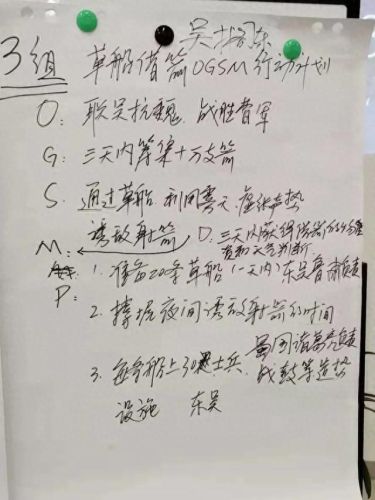 3组
草船借箭OGSM行动计划
O: 联吴抗魏,战胜曹军
G: 三天内筹集十万支箭
S: 通过草船 利用雾天,虚张声势
诱敌射箭
D: 三天内
天气判断
M:
P:
1. 准备20条草船(一天内)东吴鲁肃负责
2. 掌握夜间诱敌射箭的时间
蜀国诸葛亮负责
3. 每条船上30 士兵、战鼓等造势
设施 东吴